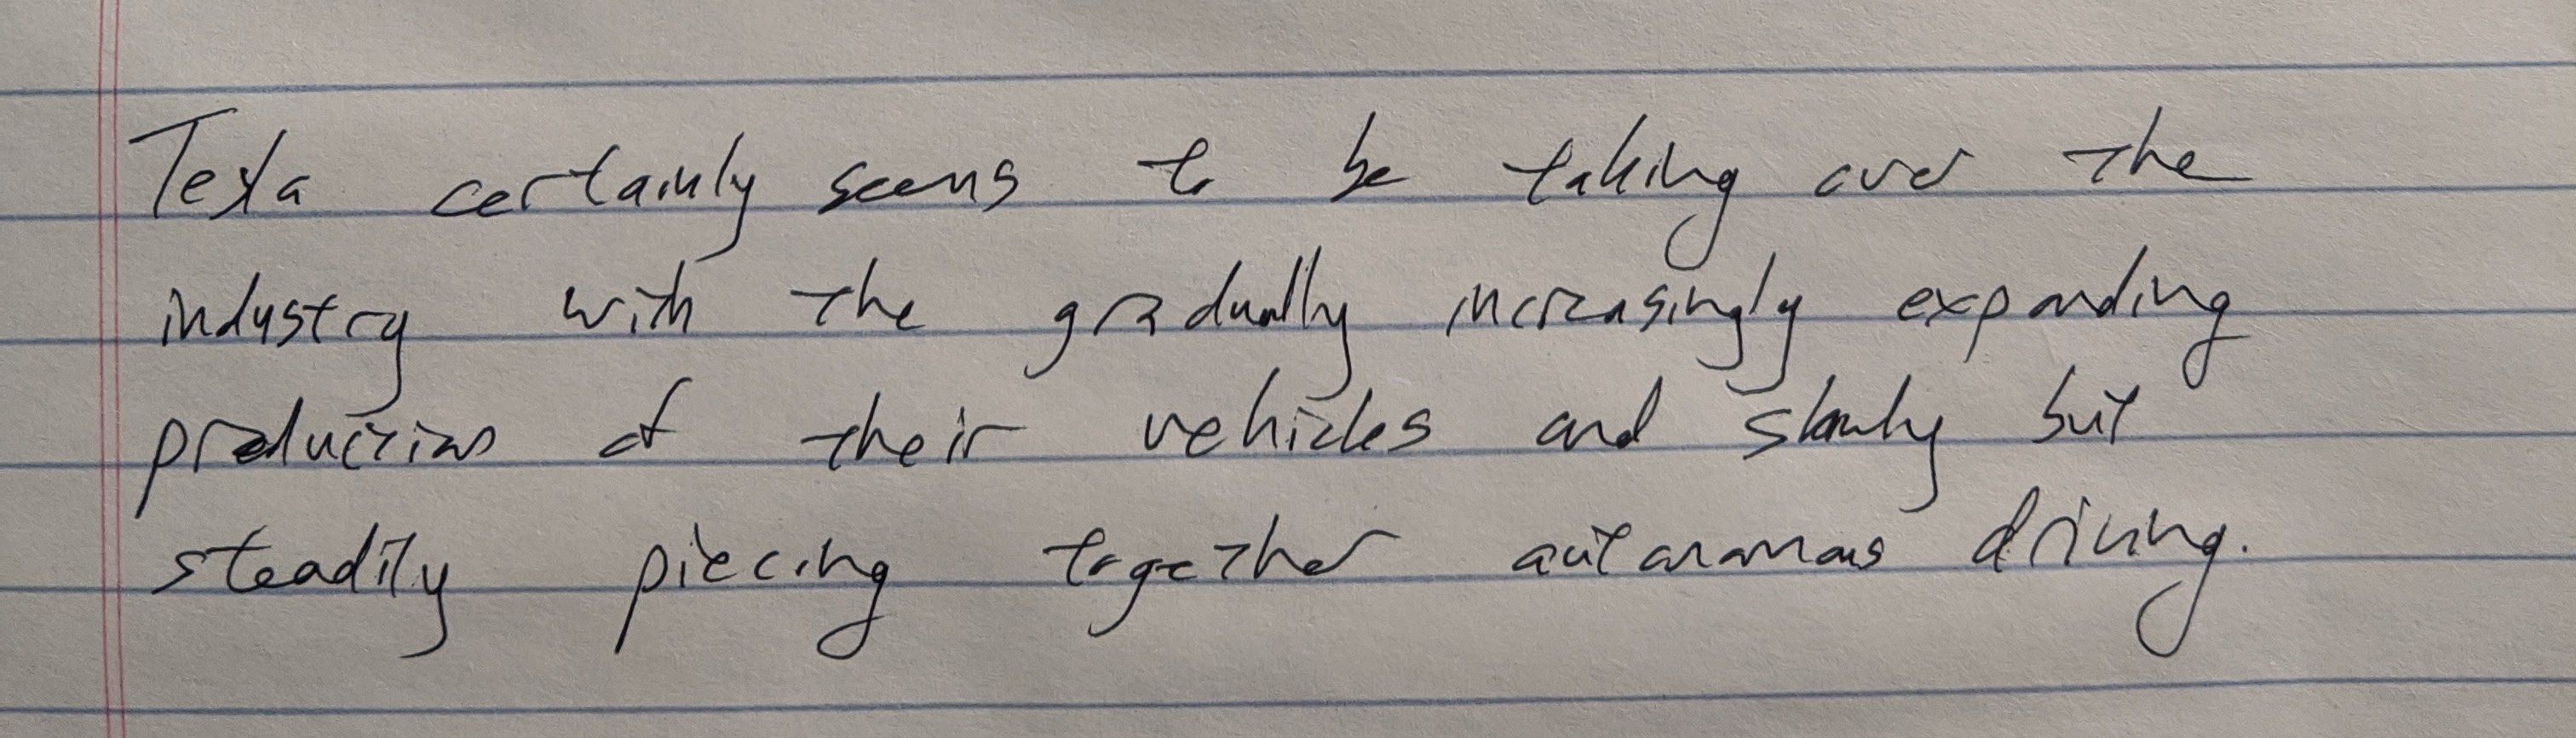 Tesla certainly seems to be taking over the
industry with the gradually increasingly expanding
production of their vehicles and slowly but
steadily piecing together autonomous driving.